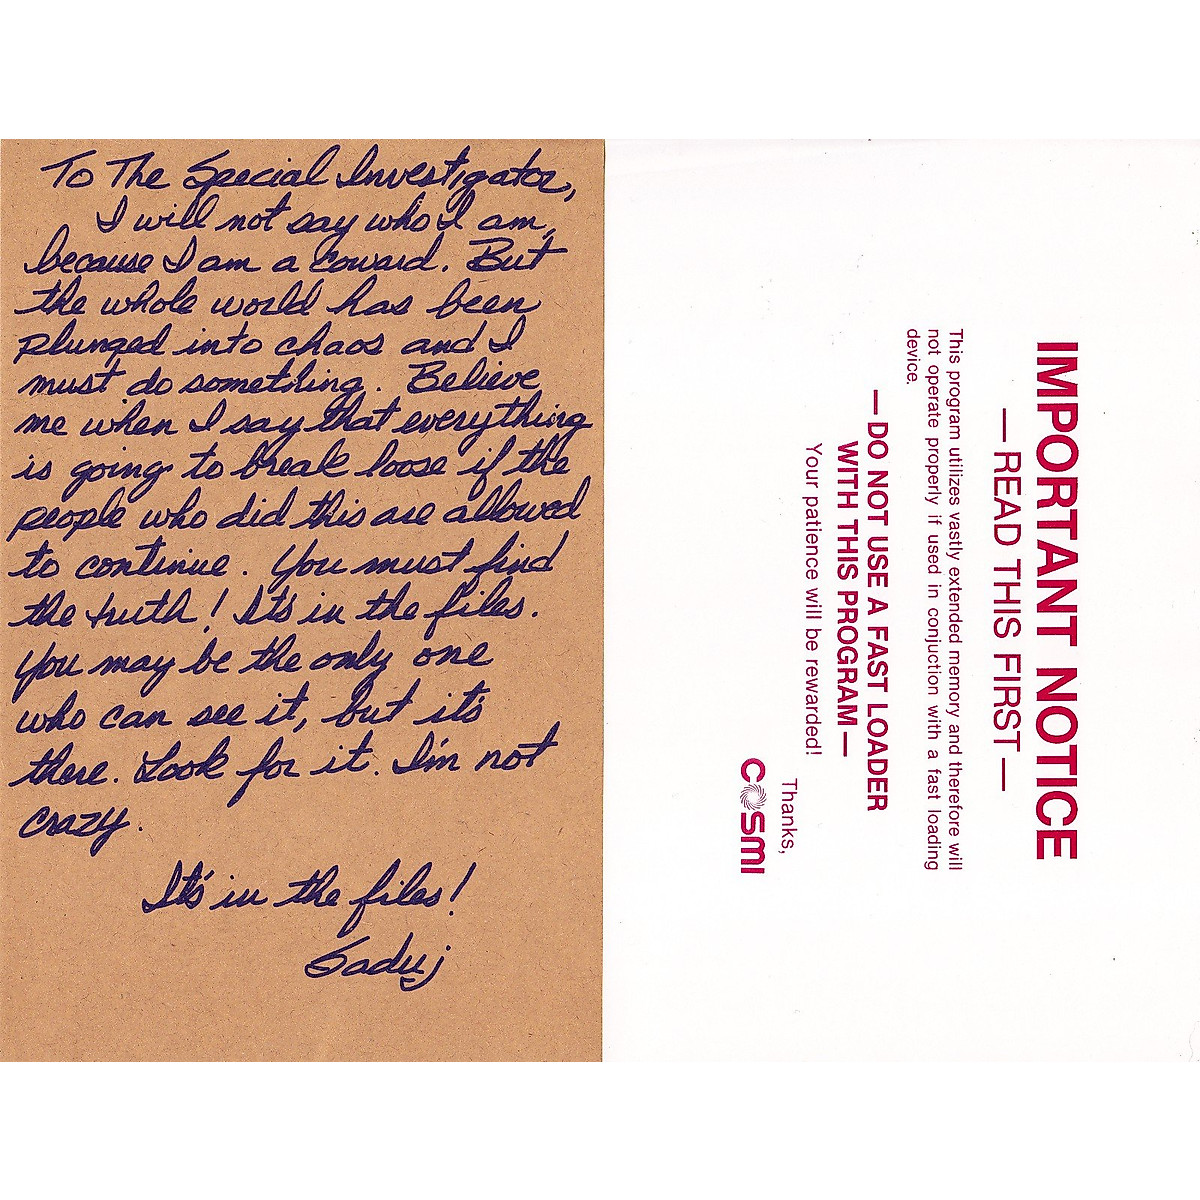 To The Special Investigator,
I will not say who I am,
because I am a coward. But
the whole world has been
plunged into chaos and I
must do something. Believe
me when I say that everything
is going to break loose if the
people who did this are allowed
to continue. You must find
the truth! It's in the files.
You may be the only one
who can see it, but it's
there. Look for it. I'm not
crazy.
It's in the files!
Saduj
IMPORTANT NOTICE
—READ THIS FIRST—
This program utilizes vastly extended memory and therefore will
not operate properly if used in conjuction with a fast loading
device.
—DO NOT USE A FAST LOADER
WITH THIS PROGRAM—
Your patience will be rewarded!
Thanks,
COSMI